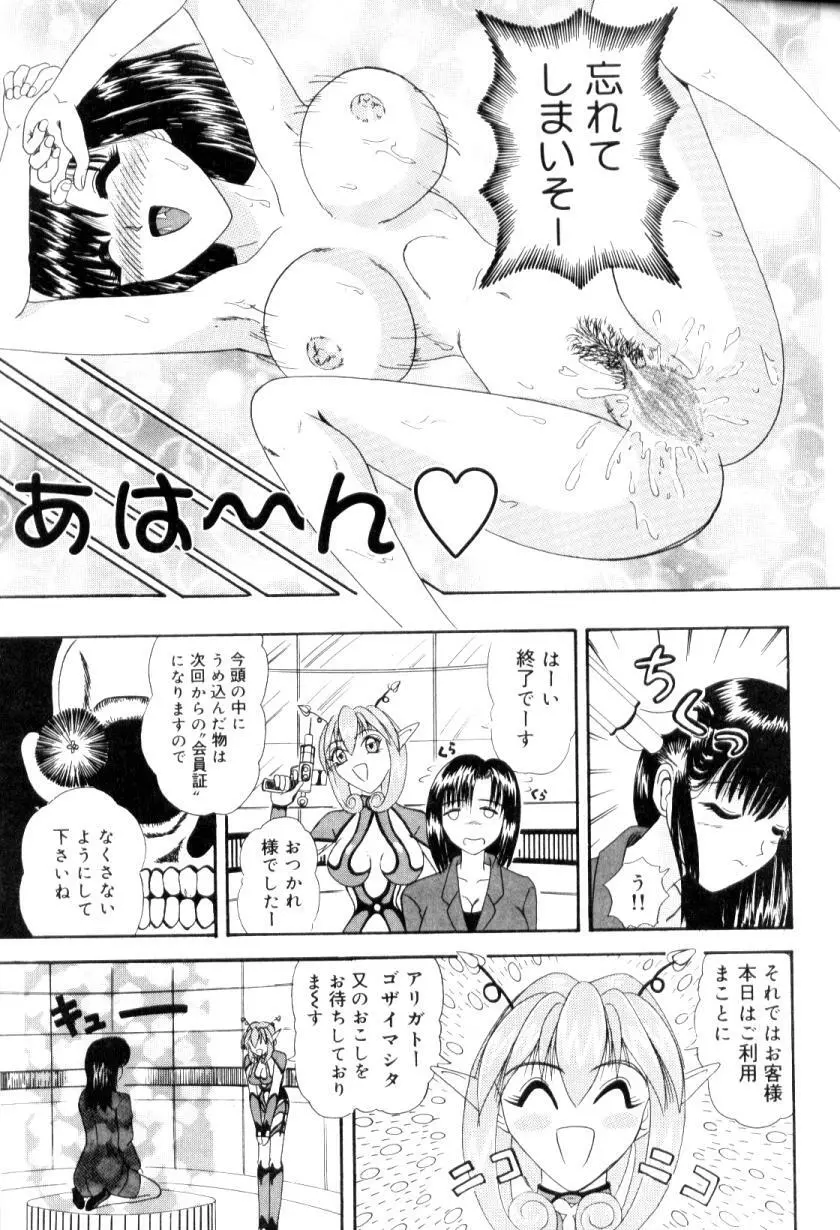 忘れて
しまいそー
あは〜〜ん♡
ちくっ
う!!
はーい
終了でーす
くら
くら
おつかれ
様でしたー
今頭の中に
うめ込んだ物は
次回からの〝会員証〟
になりますので
なくさない
ようにして
下さいね
それではお客様
本日はご利用
まことに
ニコ
ニコ
アリガトー
ゴザイマシタ
又のおこしを
お待ちしており
ま〜す
キュー